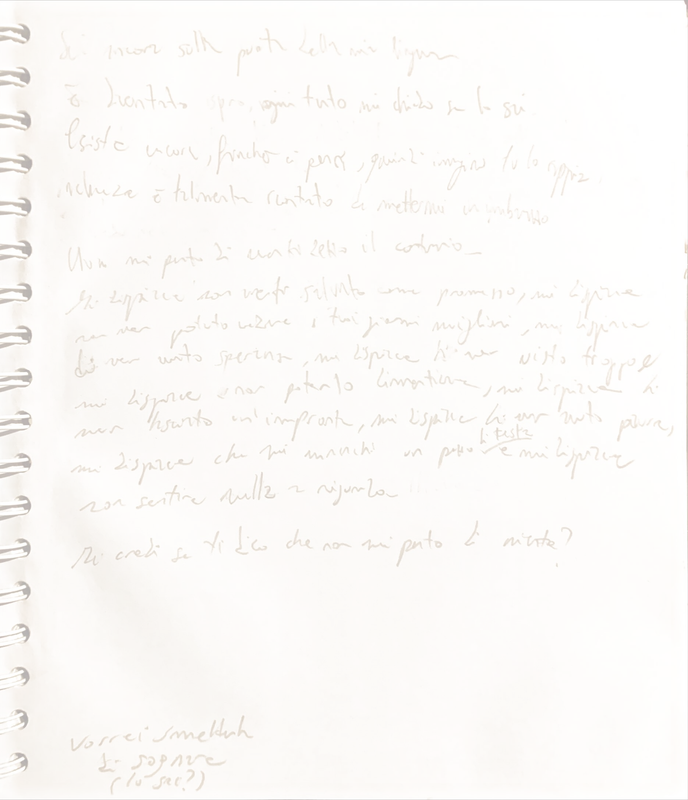 Sei ancora sulla punta della mia lingua
È diventato ogni tanto mi chiedo se lo sai.
Esiste ancora, finché ci pensi, quindi
è talmente di mettermi in imbarazzo
Non mi pento di il contrario
Mi dispiace non averti salvato come promesso, mi dispiace
non aver potuto vivere i tuoi giorni migliori, mi dispiace
di aver avuto speranza, mi dispiace di aver visto troppo e
mi dispiace non poterlo dimenticare, mi dispiace di
aver lasciato un'impronta, mi dispiace di aver avuto paura,
mi dispiace che mi manchi un pezzo di testa e mi dispiace
non sentire nulla a riguardo
Mi credi se ti dico che non mi pento di niente?
vorrei smetterla
di sognare
(lo sai?)